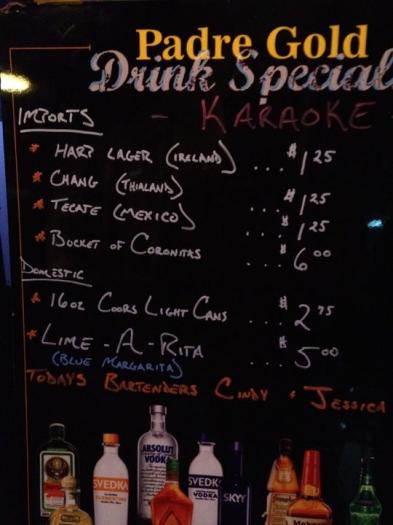 Padre Gold
Drink Special
- KARAOKE
IMPORTS
* HARP LAGER (IRELAND) ... $1.25
* CHANG (THIALAND) ... $1.25
* TECATE (MEXICO) ... $1.25
* BUCKET OF CORONITAS ... $6.00
DOMESTIC
* 16oz COORS LIGHT CANS ... $2.75
* LIME-A-RITA ... $5.00
(BLUE MARGARITA)
TODAYS BARTENDERS CINDY + JESSICA
ABSOLUT
VODKA
SVEDKA
SVEDKA
VODKA
SKYY